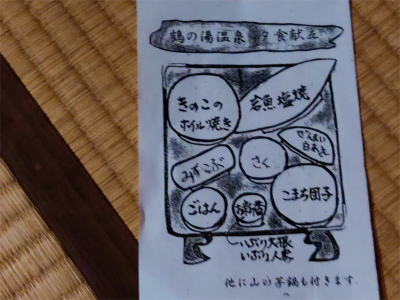 鶴の湯温泉 夕食献立
きのこの
ホイル焼き
岩魚塩焼
ぜんまい
白あえ
みずこぶ
さく
ごはん
お新香
こまち団子
いぶり大根
いぶり人参
他に山の芋鍋も付きます